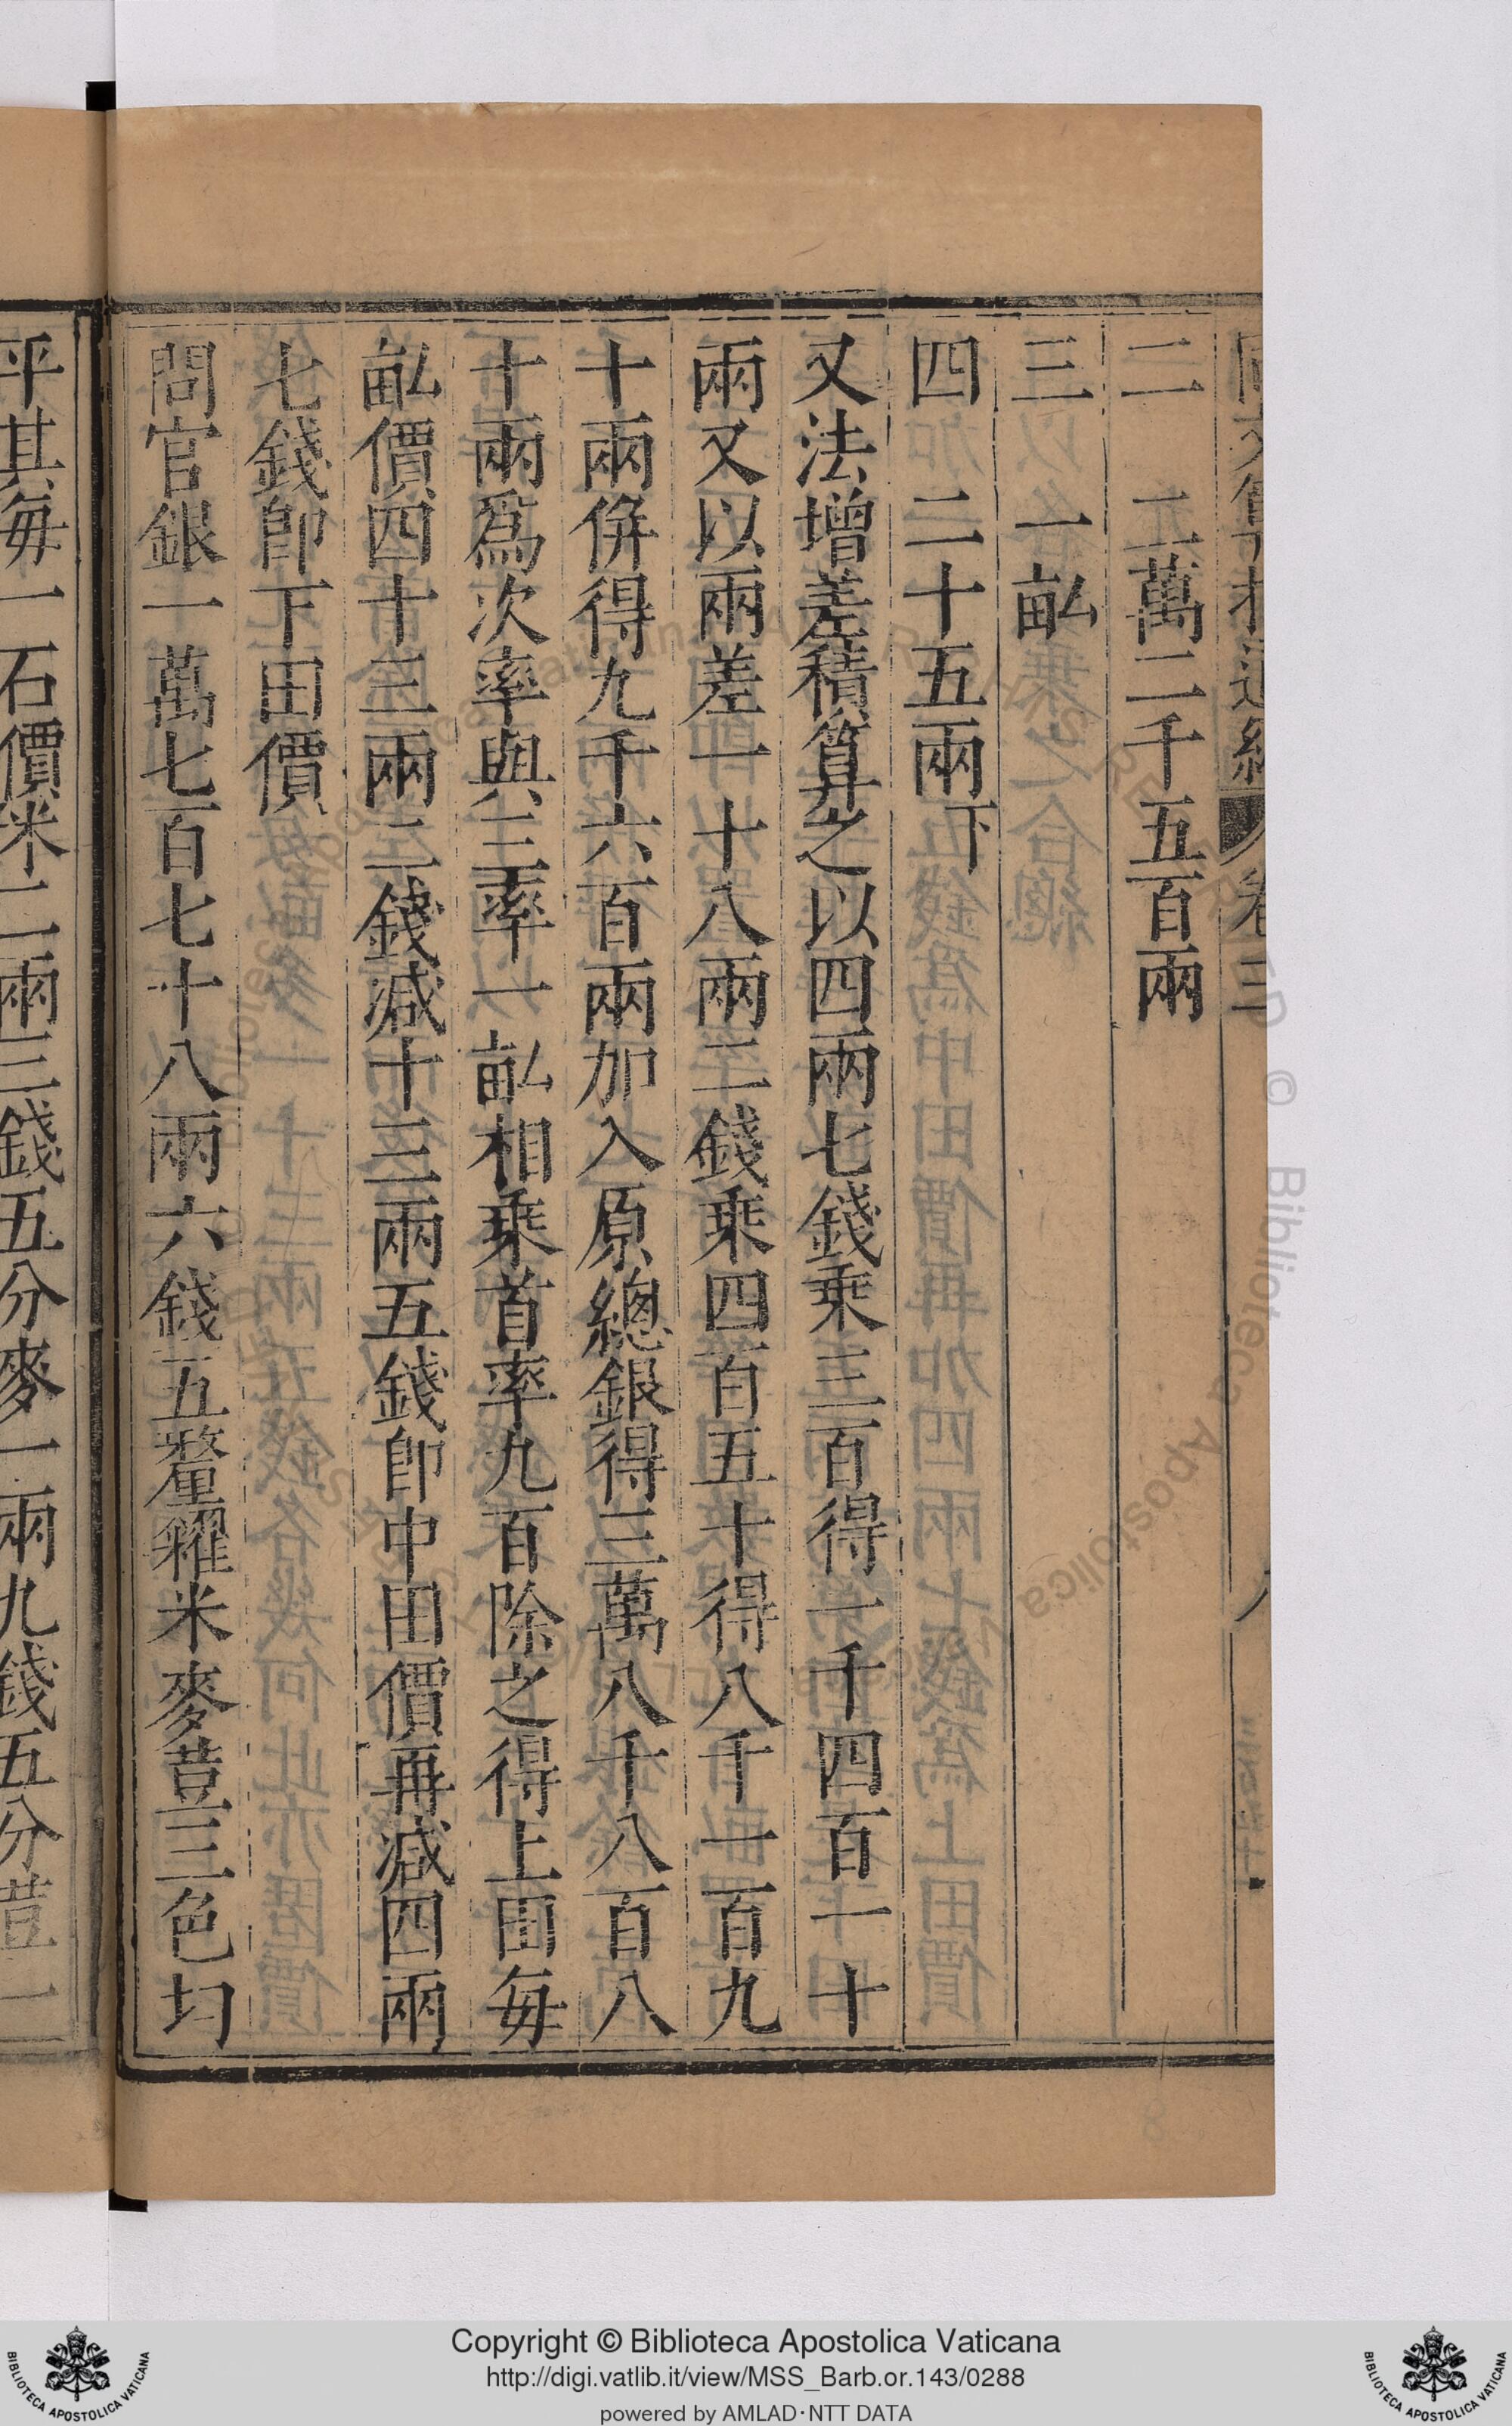 卷三
二　二萬二千五百兩
三　一畆
四　二十五兩下
又法增差積算之以四兩七錢乘三百得一千四百一十
兩又以兩差一十八兩二錢乘四百五十得八千一百九
十兩併得九千六百兩加入原總銀得三萬八千八百八
十兩爲次率與三率一畆相乘首率九百除之得上田每
畆價四十三兩二錢减十三兩五錢卽中田價再减四兩
七錢卽下田價
問官銀一萬七百七十八兩六錢五釐糴米麥荳三色均
平其每一石價米二兩三錢五分麥一兩九錢五分荳一
Copyright © Biblioteca Apostolica Vaticana
http://digi.vatlib.it/view/MSS_Barb.or.143/0288
powered by AMLAD·NTT DATA
BIBLIOTECA APOSTOLICA VATICANA
BIBLIOTECA APOSTOLICA VATICANA